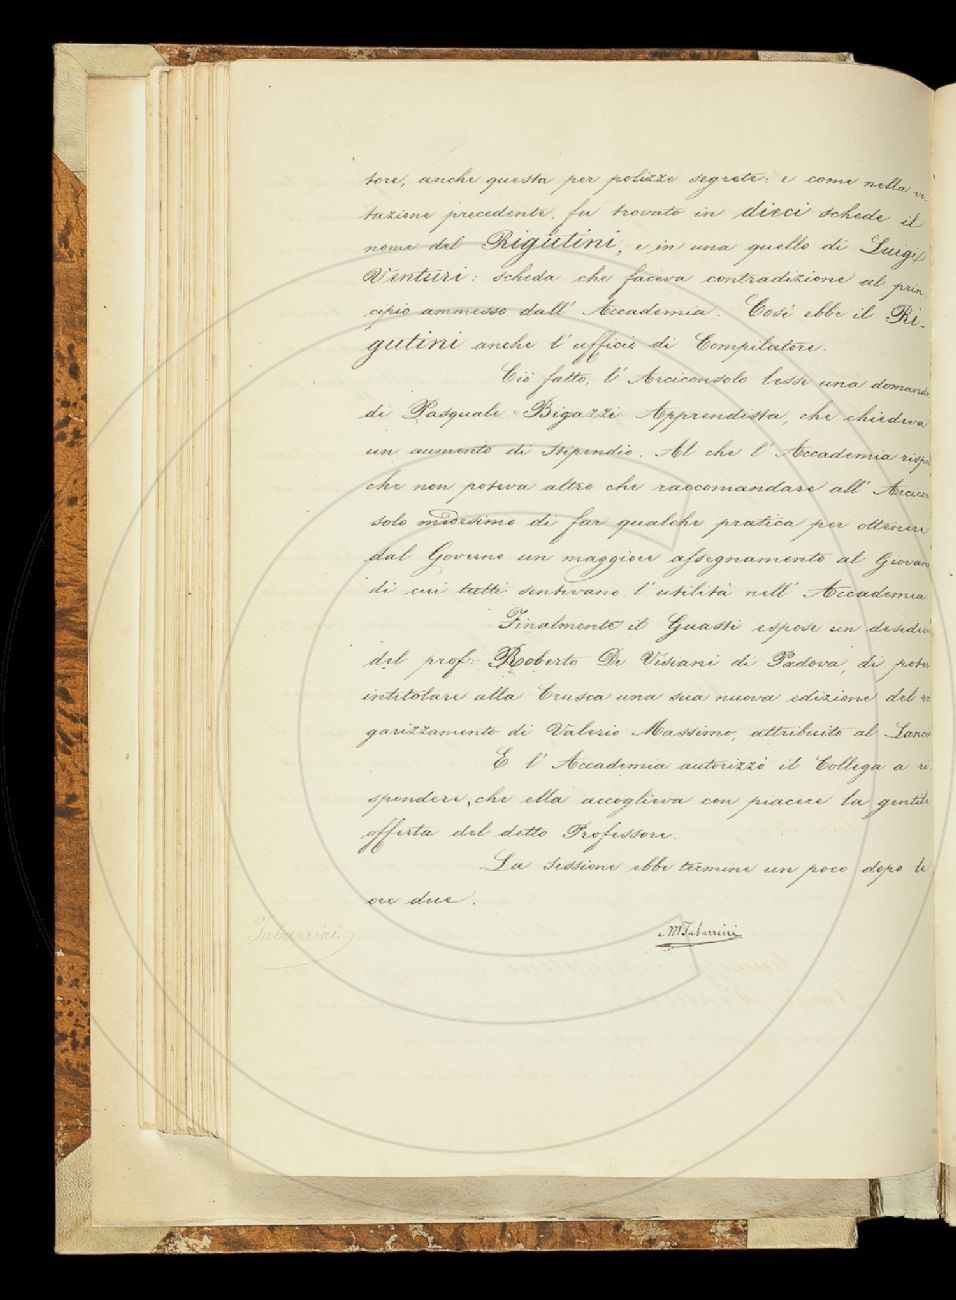 tore, anche questa per polizze segrete: e come nella vo-
tazione precedente, fu trovato in dieci schede il
nome del Rigutini, e in una quello di Luigi
Venturi: scheda che faceva contradizione al prin-
cipio ammesso dall' Accademia. Così ebbe il Ri-
gutini anche l' ufficio di Compilatore.
Ciò fatto, l' Arciconsolo lesse una domanda
di Pasquale Bigazzi Apprendista, che chiedeva
un aumento di stipendio. Al che l' Accademia rispo
che non poteva altro che raccomandare all' Arcicon
solo medesimo di far qualche pratica per ottenere
dal Governo un maggiore assegnamento al Giovan
di cui tutti sentivano l' utilità nell' Accademia
Finalmente il Guasti espose un desider
del prof: Roberto De Visiani di Padova, di poter
intitolare alla Crusca una sua nuova edizione del vo
garizzamento di Valerio Massimo, attribuito al Lancia
E l' Accademia autorizzò il Collega a ri-
spondere, che ella accoglieva con piacere la gentile
offerta del detto Professore.
La sessione ebbe termine un poco dopo le
ore due.
Tabarrini
MTabarrini